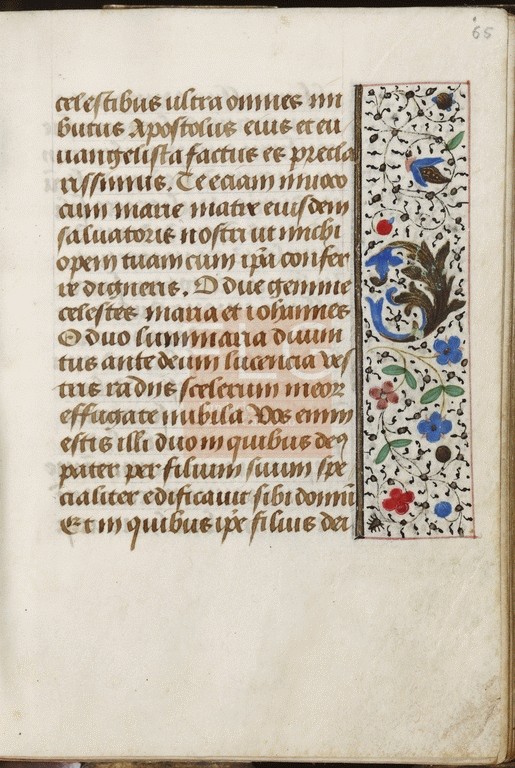 65
celestibus ultra omnes im
butus Apostolus eius et eu
uangelista factus es precla
rissimus. Te eciam inuoco
cum marie matre eiusdem
saluatoris nostri ut michi
opem tuam cum ip̄a confer
re digneris. O due gemme
celestes maria et iohannes
O duo luminaria diuini
tus ante deum lucencia ves
tris radiis scelerum meor
effugate nubila. Vos enim
estis illi duo in quibus deꝰ
pater per filium suum spe
cialiter edificauit sibi domū
Et in quibus ip̄e filius dei